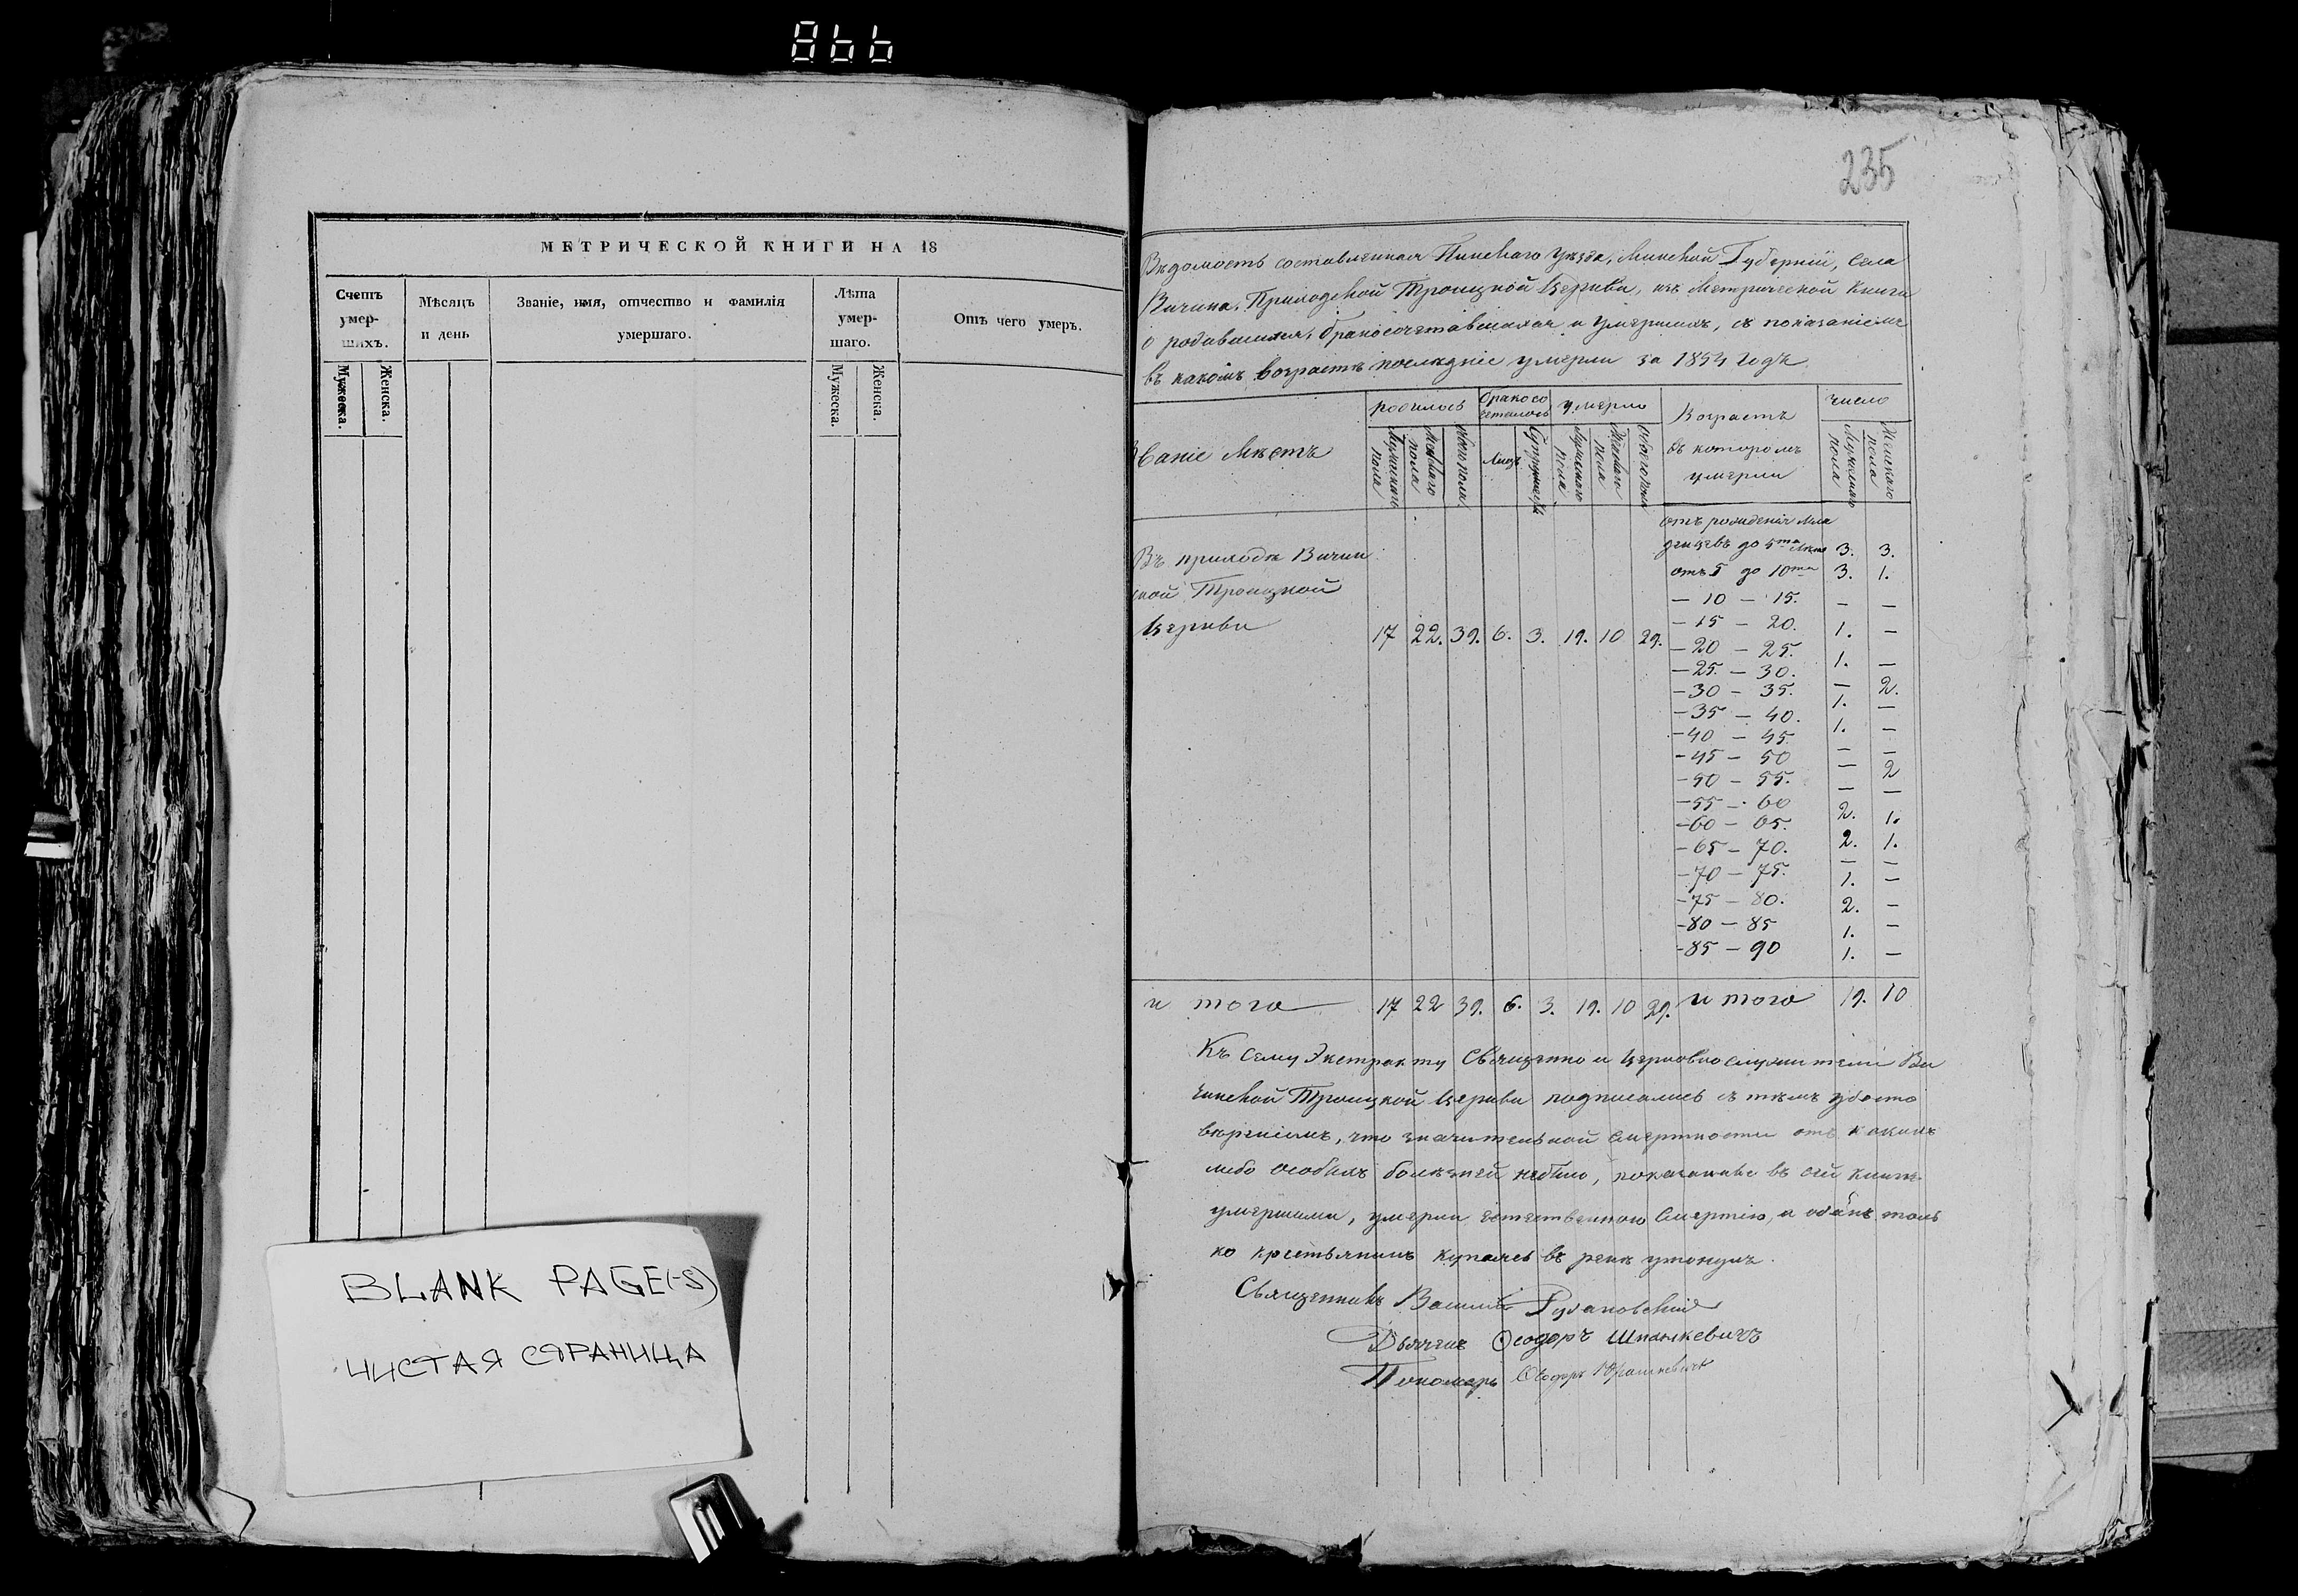 866
МЕТРИЧЕСКОЙ КНИГИ НА 18
Счетъ умер- шихъ.
Мѣсяцъ и день
Званіе, имя, отчество и фамилія умершаго.
Лѣта умер- шаго.
Отъ чего умеръ.
Мужеска.
Женска.
Мужеска.
Женска.
BLANK PAGE(-S)
ЧИСТАЯ СТРАНИЦА
235
Вѣдомость составленная Пинскаго уѣзда, Минской Губерніи, села
Вичина, Приходской Троицкой Церкви, изъ Метрической Книги
о родившихся, бракосочетавшихся и умершихъ, съ показаніемъ
въ какомъ возрастѣ послѣдніе умерли за 1854 годъ.
званіе Мѣстъ
родилось
бракосо четалось
умерло
Возрастъ
въ которомъ
умерли
число
Мужескаго пола
Женскаго пола
обоего пола
Лицъ
Супружествъ
Мужескаго пола
Женскаго пола
обоего пола
Мужескаго пола
Женскаго пола
Въ приходѣ Вичин
ской Троицкой
Церкви 17 22. 39. 6. 3. 19. 10 29.
отъ рожденія мла
денцевъ до 5та лѣтъ 3. 3.
отъ 5 до 10ти 3. 1.
— 10 — 15. — —
— 15 — 20. 1. —
— 20 — 25. 1. —
— 25. — 30. — 2.
— 30 — 35. 1. —
— 35 — 40. 1. —
— 40 — 45. — —
— 45 — 50 — 2
— 50 — 55. — —
— 55 — 60 2. 1.
— 60 — 65. 2. 1.
— 65 — 70. — —
— 70 — 75. 1. —
— 75 — 80. 2. —
— 80 — 85 1. —
— 85 — 90 1. —
и того 17 22 39. 6. 3. 19. 10 29. и того 19. 10
Къ сему Экстракту Священно и церковнослужители Ви
чинской Троицкой Церкви подписались съ тѣмъ удосто
вереніемъ, что значительной смертности отъ какихъ
либо особыхъ болѣзней небыло, показанные въ сей книгѣ
умершими, умерли естественною смертію, а одинъ толь
ко крестьянинъ купаясь въ рекѣ утонулъ.
Священникъ Василій
Дьячекъ Ѳеодоръ Шпанкевичъ
Пономарь Ѳеодоръ